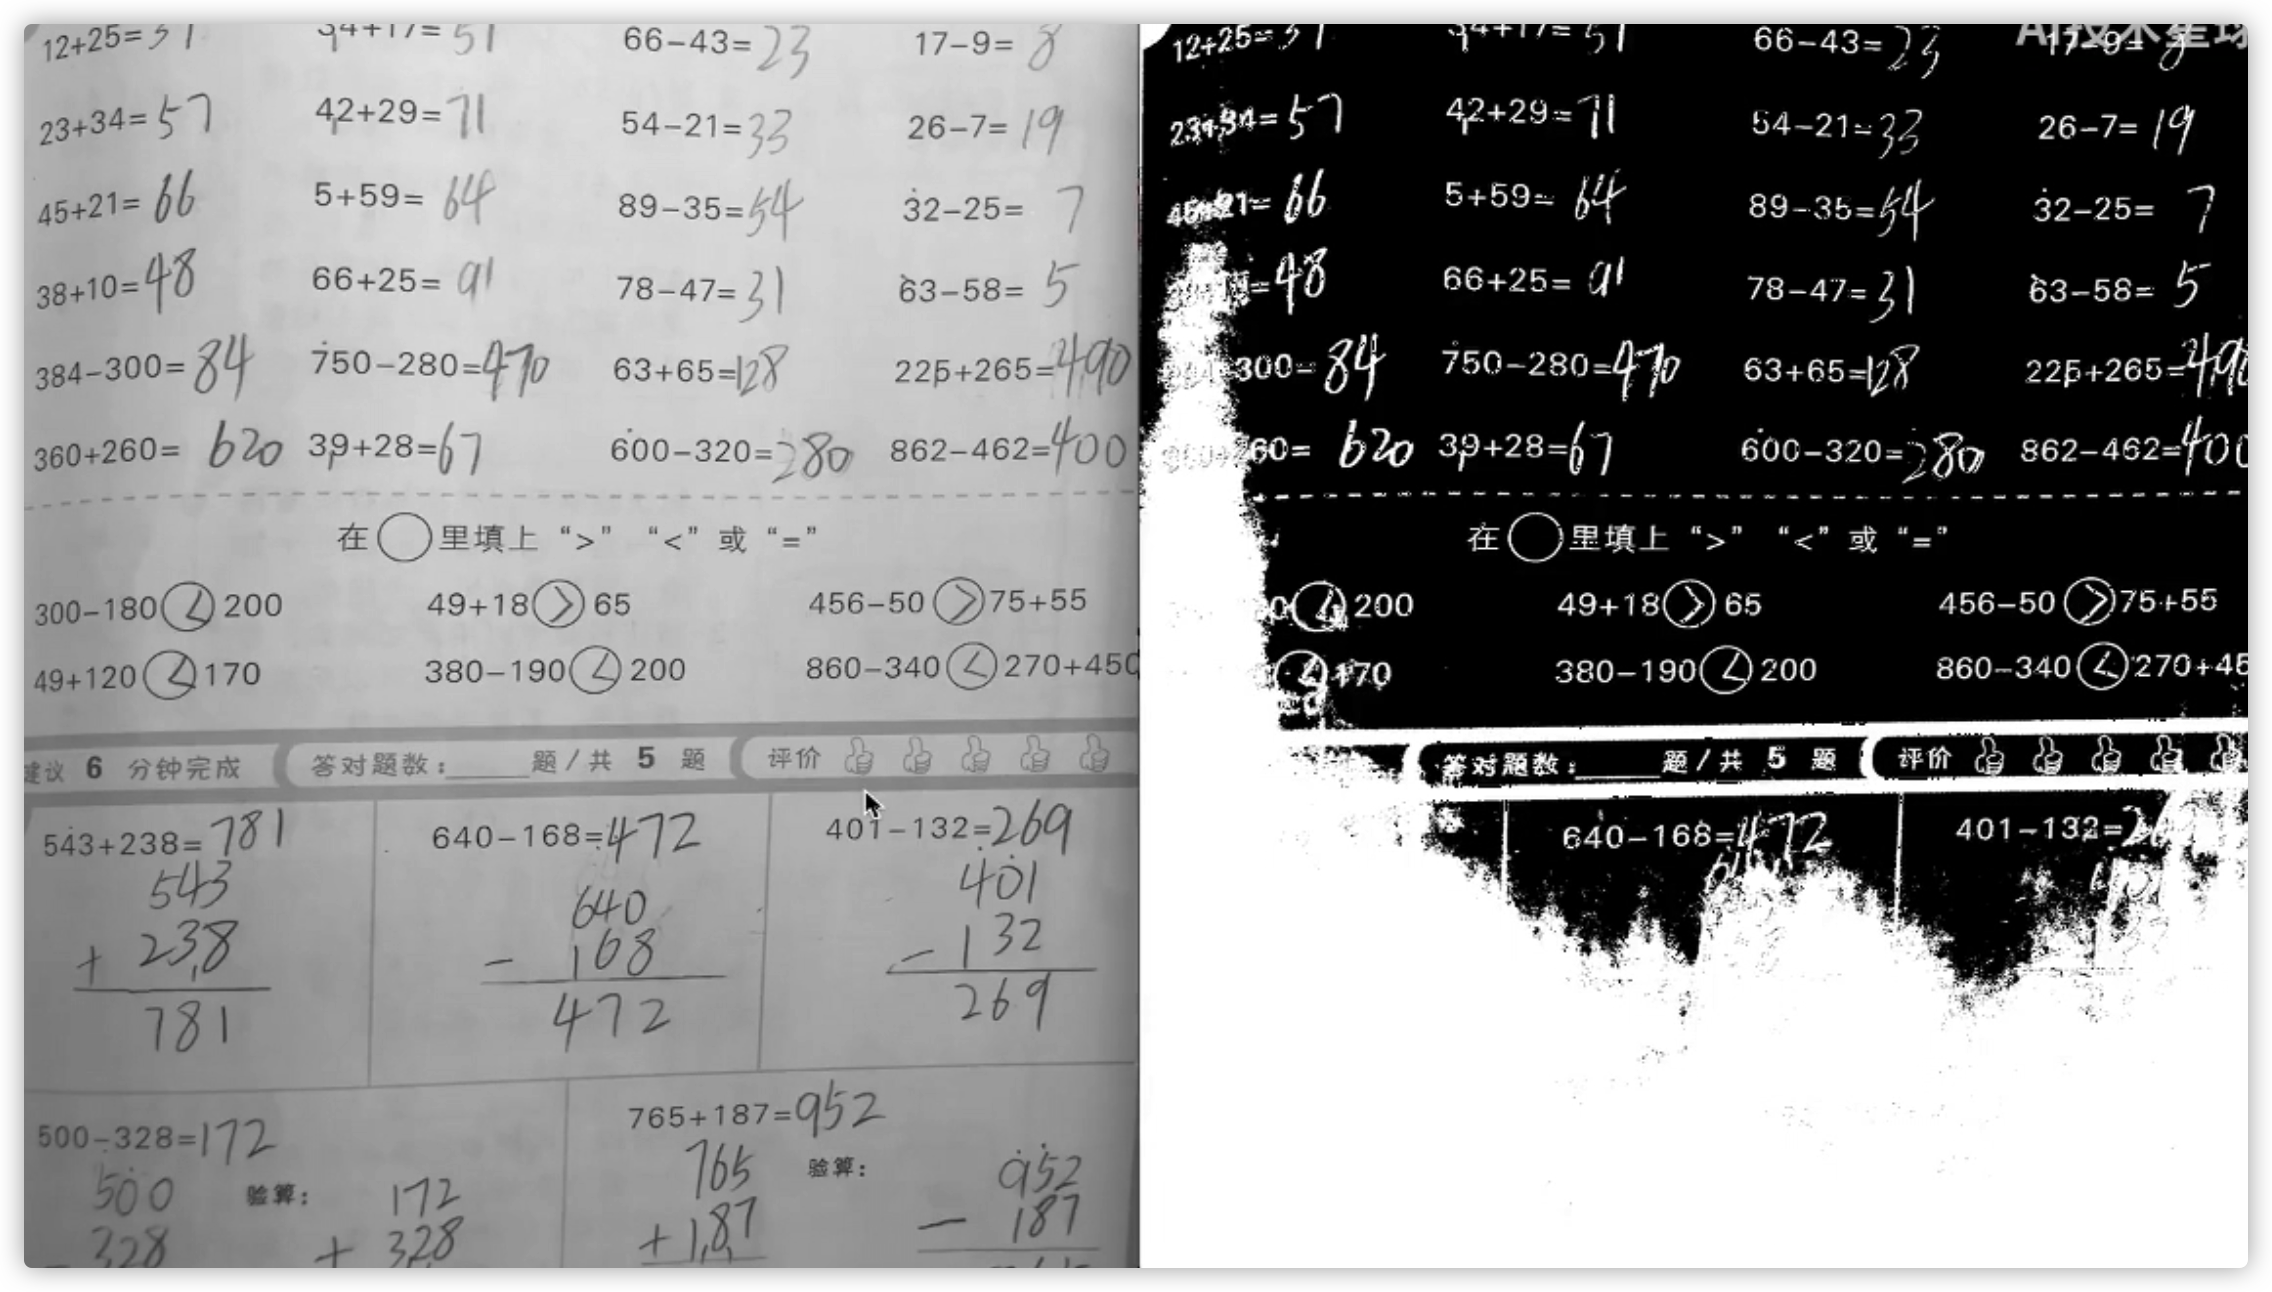 12+25=37 34+17=51 66-43=23 17-9=8
23+34=57 42+29=71 54-21=33 26-7=19
45+21=66 5+59=64 89-35=54 32-25=7
38+10=48 66+25=91 78-47=31 63-58=5
384-300=84 750-280=470 63+65=128 225+265=490
360+260=620 39+28=67 600-320=280 862-462=400
在○里填上“>”“<”或“=”
300-180<200 49+18>65 456-50>75+55
49+120<170 380-190<200 860-340<270+450
建议 6 分钟完成 答对题数:____题/共 5 题 评价
543+238=781 640-168=472 401-132=269
543 640 401
+ 238 - 168 - 132
781 472 269
500-328=172 765+187=952
500 验算: 172 765 验算: 952
- 328 + 328 + 187 - 187
AI技术星球
12+25=37 34+17=51 66-43=23 17-9=8
23+34=57 42+29=71 54-21=33 26-7=19
45+21=66 5+59=64 89-35=54 32-25=7
=48 66+25=91 78-47=31 63-58=5
300=84 750-280=470 63+65=128 225+265=490
60=620 39+28=67 600-320=280 862-462=400
在○里填上“>”“<”或“=”
0<200 49+18>65 456-50>75+55
<170 380-190<200 860-340<270+45
答对题数:____题/共 5 题 评价
640-168=472 401-132=26